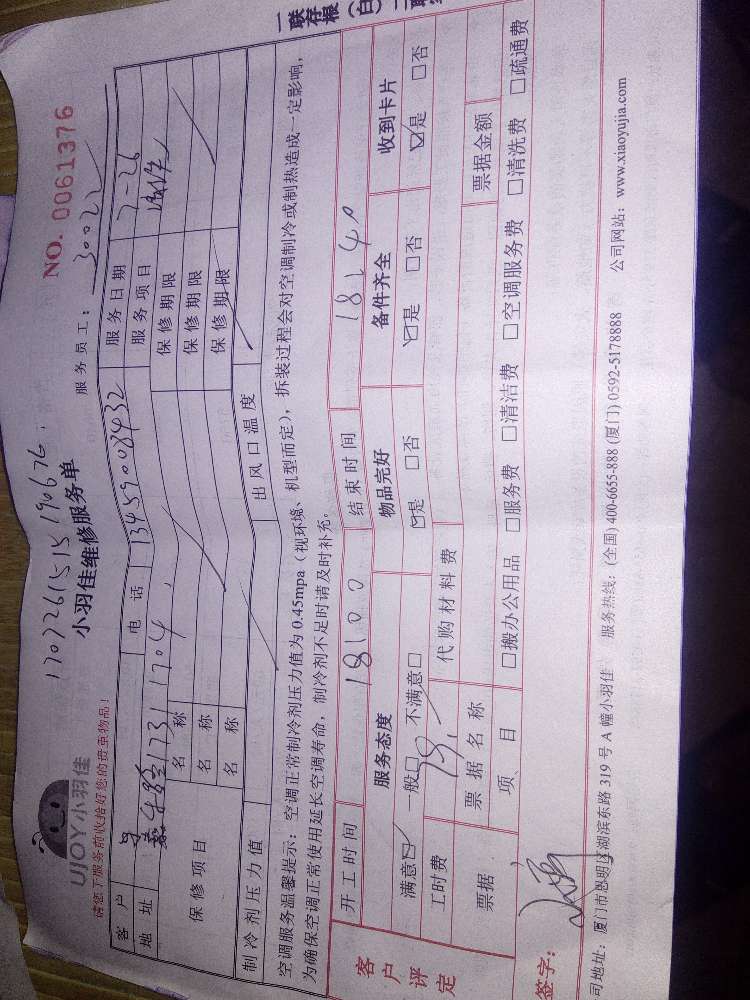 一联存根(白)
NO. 0061376
1707261515190676
UJOY小羽佳
小羽佳维修服务单
服务员工: 30022
请您于服务前收拾好您的贵重物品!
客户 电话 13459008432 服务日期 7-26
地址 731 1704 服务项目
保修项目 名称 保修期限
名称 保修期限
名称 保修期限
制冷剂压力值 出风口温度
空调服务温馨提示: 空调正常制冷剂压力值为 0.45mpa (视环境、机型而定), 拆装过程会对空调制冷或制热造成一定影响,
为确保空调正常使用延长空调寿命, 制冷剂不足时请及时补充。
客户评定
开工时间 18 00 结束时间 18 40
服务态度 物品完好 备件齐全 收到卡片
满意☑ 一般□ 不满意□ ☑是 □否 ☑是 □否 ☑是 □否
工时费 代购材料费
票据 票据名称 票据金额
项、目 □搬办公用品 □服务费 □清洁费 □空调服务费 □清洗费 □疏通费
签字:
司地址: 厦门市思明区湖滨东路 319 号 A 幢小羽佳 服务热线: (全国) 400-6655-888 (厦门) 0592-5178888 公司网站: www.xiaoyujia.com